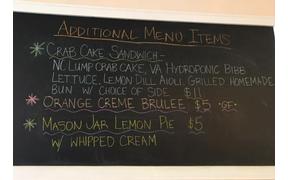 ADDITIONAL MENU ITEMS
* CRAB CAKE SANDWICH-
NC LUMP CRAB CAKE, VA HYDROPONIC BIBB
LETTUCE, LEMON DILL AIOLI, GRILLED HOMEMADE
BUN W/ CHOICE OF SIDE $11
* ORANGE CREME BRULEE $5 *GF*
* MASON JAR LEMON PIE $5
W/ WHIPPED CREAM